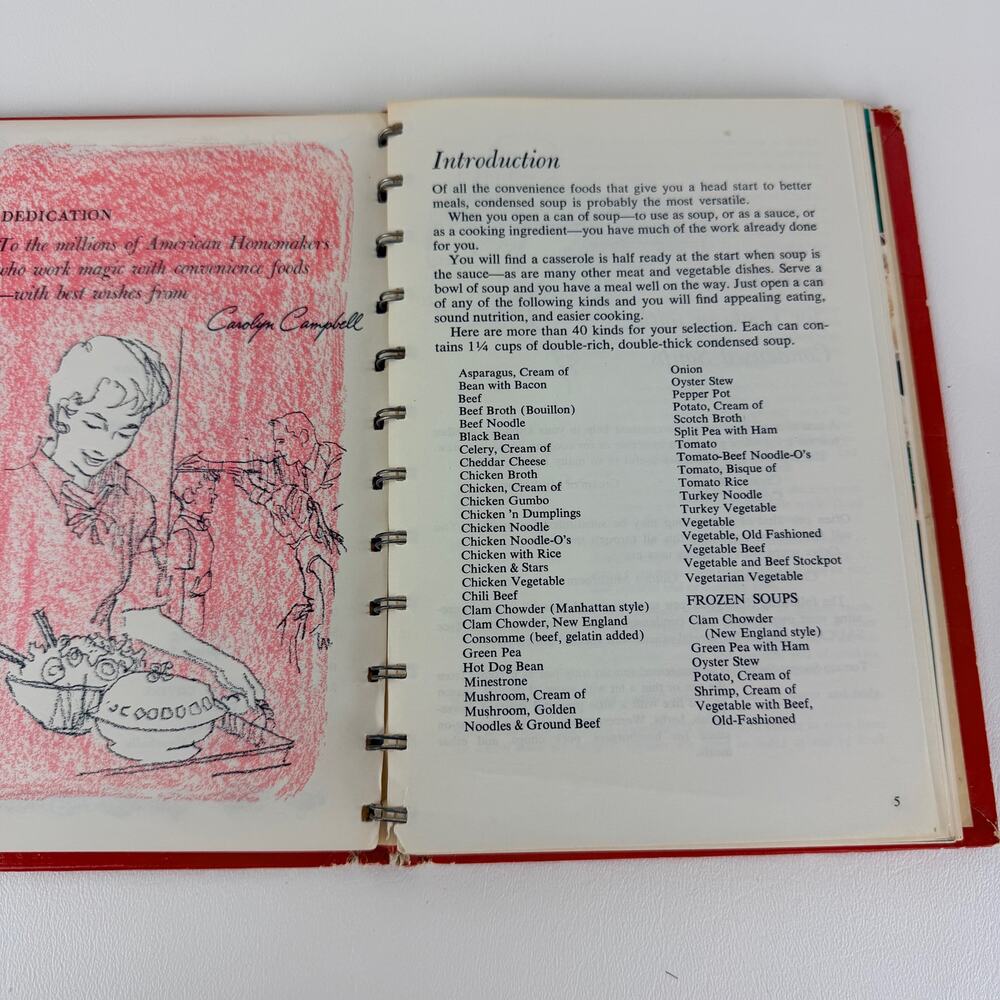 DEDICATION
To the millions of American Homemakers
who work magic with convenience foods
—with best wishes from
Carolyn Campbell
Introduction
Of all the convenience foods that give you a head start to better
meals, condensed soup is probably the most versatile.
When you open a can of soup—to use as soup, or as a sauce, or
as a cooking ingredient—you have much of the work already done
for you.
You will find a casserole is half ready at the start when soup is
the sauce—as are many other meat and vegetable dishes. Serve a
bowl of soup and you have a meal well on the way. Just open a can
of any of the following kinds and you will find appealing eating,
sound nutrition, and easier cooking.
Here are more than 40 kinds for your selection. Each can con-
tains 1¼ cups of double-rich, double-thick condensed soup.
Asparagus, Cream of
Bean with Bacon
Beef
Beef Broth (Bouillon)
Beef Noodle
Black Bean
Celery, Cream of
Cheddar Cheese
Chicken Broth
Chicken, Cream of
Chicken Gumbo
Chicken 'n Dumplings
Chicken Noodle
Chicken Noodle-O's
Chicken with Rice
Chicken & Stars
Chicken Vegetable
Chili Beef
Clam Chowder (Manhattan style)
Clam Chowder, New England
Consomme (beef, gelatin added)
Green Pea
Hot Dog Bean
Minestrone
Mushroom, Cream of
Mushroom, Golden
Noodles & Ground Beef
Onion
Oyster Stew
Pepper Pot
Potato, Cream of
Scotch Broth
Split Pea with Ham
Tomato
Tomato-Beef Noodle-O's
Tomato, Bisque of
Tomato Rice
Turkey Noodle
Turkey Vegetable
Vegetable
Vegetable, Old Fashioned
Vegetable Beef
Vegetable and Beef Stockpot
Vegetarian Vegetable
FROZEN SOUPS
Clam Chowder
(New England style)
Green Pea with Ham
Oyster Stew
Potato, Cream of
Shrimp, Cream of
Vegetable with Beef,
Old-Fashioned
5